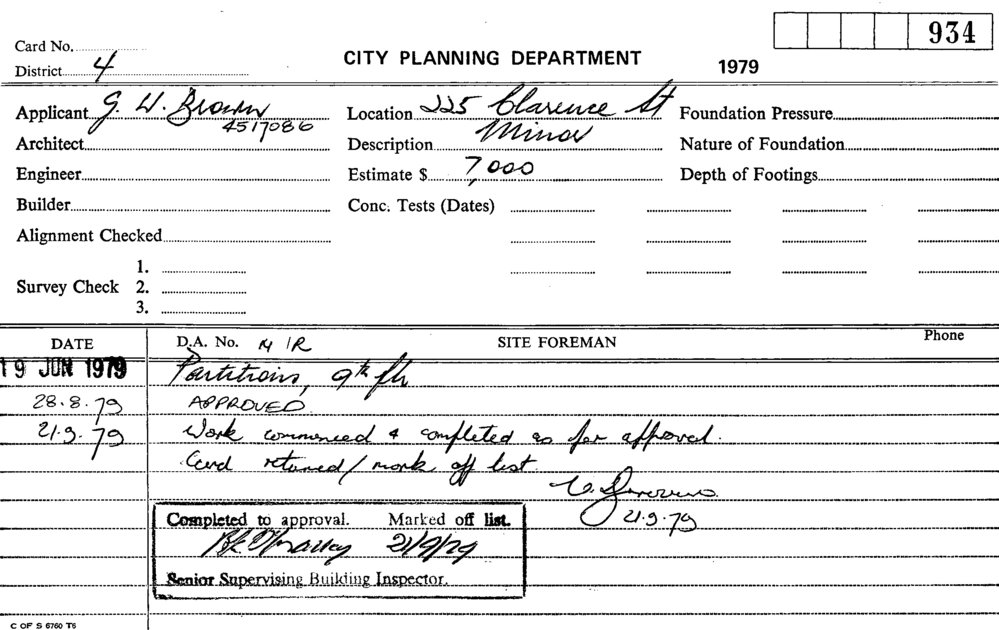 934
Card No.
CITY PLANNING DEPARTMENT
1979
District 4
Applicant G. W. Brown Location 225 Clarence St Foundation Pressure
4517086
Architect Description Minor Nature of Foundation
Engineer Estimate $ 7,000 Depth of Footings
Builder Conc. Tests (Dates)
Alignment Checked
1.
Survey Check 2.
3.
DATE D.A. No. N/R SITE FOREMAN Phone
19 JUN 1979 Partitions, 9th flr
28.8.79 APPROVED
21.9.79 Work commenced & completed as per approval.
Card returned/mark off list
21.9.79
Completed to approval. Marked off list.
21/9/79
Senior Supervising Building Inspector.
C OF S 6760 T6